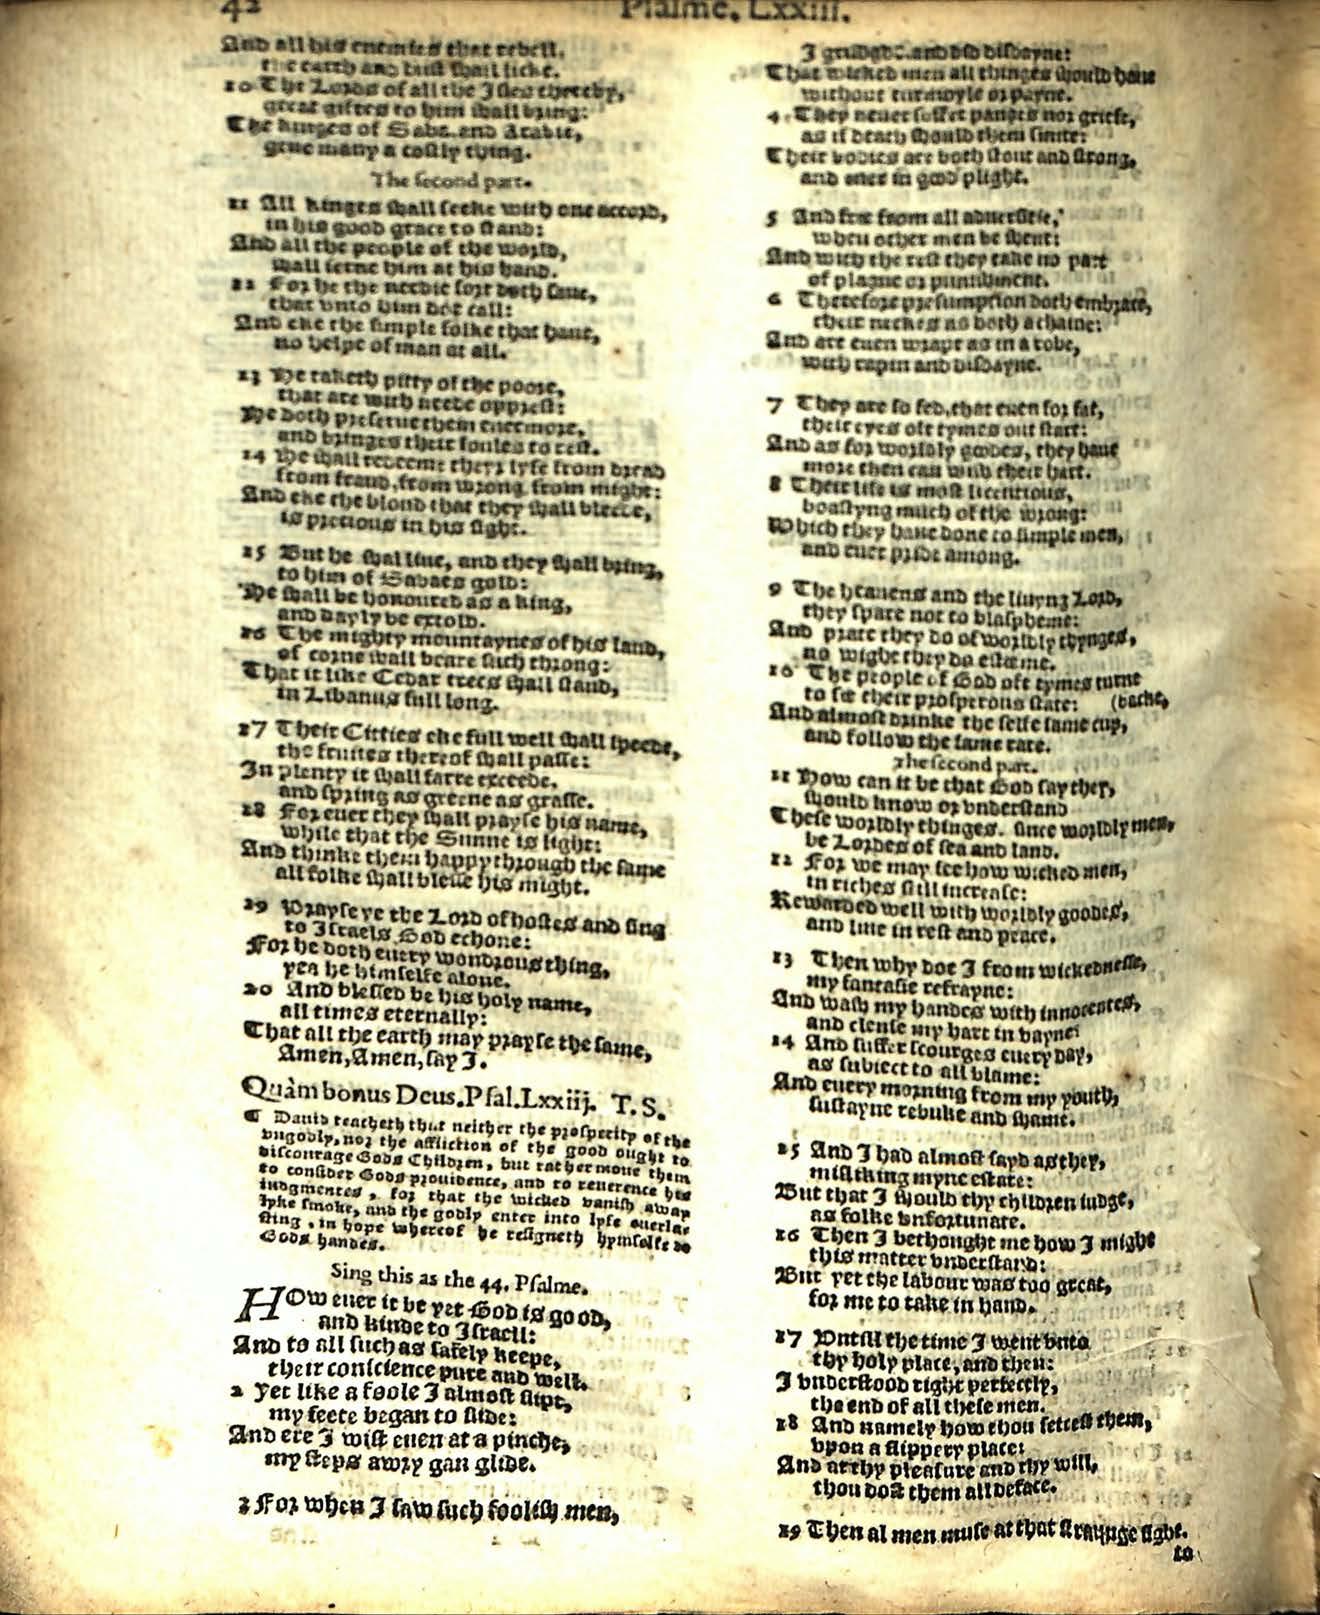 42
Psalme. Lxxiii.
And all his enemies that rebell,
the earth and dust shall licke.
10 The Lords of all the Isles thereby,
great giftes to him shall bring:
The kinges of Saba and Arabie,
geue many a costly thing.
The second part.
11 All kinges shall seeke with one accord,
in his good grace to stand:
And all the people of the world,
shall serue him at his hand.
12 For he the needie sort doth saue,
that vnto him doe call:
And eke the simple folke that haue,
no helpe of man at all.
13 He taketh pitty of the poore,
that are with neede opprest:
He doth preserue them euermore,
and bringes their soules to rest.
14 He shall redeeme theyr lyfe from dread
from fraud, from wrong from might:
And eke the bloud that they shall bleede,
is precious in his sight.
15 But he shal liue, and they shall bring,
to him of Sabaes gold:
He shall be honoured as a king,
and dayly be extold.
16 The mighty mountaynes of his land,
of corne shall beare such throng:
That it like Cedar trees shall stand,
in Libanus full long.
17 Their Citties eke full well shall speede,
the fruites thereof shall passe:
In plenty it shall farre exceede,
and spring as greene as grasse.
18 For euer they shall prayse his name,
while that the Sunne is light:
And thinke them happy through the same
all folke shall blesse his might.
19 Prayse ye the Lord of hostes and sing
to Israels God echone:
For he doth euery wondrous thing,
yea he himselfe alone.
20 And blessed be his holy name,
all times eternally:
That all the earth may prayse the same,
Amen, Amen, say I.
Quàm bonus Deus. Psal. Lxxiij. T. S.
¶ Dauid teacheth that neither the prosperity of the
vngodly, nor the affliction of the good ought to
discourage Gods Children, but rather moue them
to consider Gods prouidence, and to reuerence his
iudgmentes, for that the wicked vanish away
lyke smoke, and the godly enter into lyfe euerla-
sting, in hope whereof he resigneth hymselfe to
Gods handes.
Sing this as the 44. Psalme.
HOw euer it be yet God is good,
and kinde to Israell:
And to all such as safely keepe,
their conscience pure and well.
2 Yet like a foole I almost slipt,
my feete began to slide:
And ere I wist euen at a pinche,
my steps awry gan glide.
3 For when I saw such foolish men,
I grudgde and did disdayne:
That wicked men all thinges should haue
without turmoyle or payne.
4 They neuer suffer panges nor griefe,
as if death should them smite:
Their bodies are both stout and strong,
and euer in good plight.
5 And free from all aduersitie,
when other men be shent:
And with the rest they take no part
of plague or punishment.
6 Therefore presumption doth embrace,
their neckes as doth a chaine:
And are euen wrapt as in a robe,
with rapin and disdayne.
7 They are so fed, that euen for fat,
their eyes oft tymes out start:
And as for worldly goodes, they haue
more then can wish their hart.
8 Their life is most licentious,
boastyng much of the wrong:
Which they haue done to simple men,
and euer pride among.
9 The heauens and the liuyng Lord,
they spare not to blaspheme:
And prate they do of worldly thynges,
no wight they do esteeme.
10 The people of God oft tymes turne
to see their prosperous state: (backe,
And almost drinke the selfe same cup,
and follow the same rate.
The second part.
11 How can it be that God say they,
should know or vnderstand
These worldly thinges, since worldly men,
be Lordes of sea and land.
12 For we may see how wicked men,
in riches still increase:
Rewarded well with worldly goodes,
and liue in rest and peace.
13 Then why doe I from wickednesse,
my fantasie refrayne:
And wash my handes with innocentes,
and clense my hart in vayne:
14 And suffer scourges euery day,
as subiect to all blame:
And euery morning from my youth,
sustayne rebuke and shame.
15 And I had almost sayd as they,
misliking myne estate:
But that I should thy children iudge,
as folke vnfortunate.
16 Then I bethought me how I might
this matter vnderstand:
But yet the labour was too great,
for me to take in hand.
17 Vntill the time I went vnto
thy holy place, and then:
I vnderstood right perfectly,
the end of all these men.
18 And namely how thou settest them,
vpon a slippery place:
And at thy pleasure and thy will,
thou dost them all deface.
19 Then al men muse at that straunge sight.
to